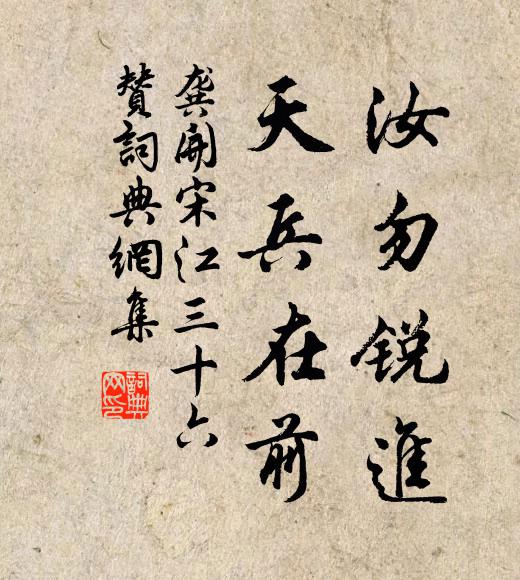 汝勿銳進
天兵在前
龔開宋江三十六
贊詞典網集
詞典
网印